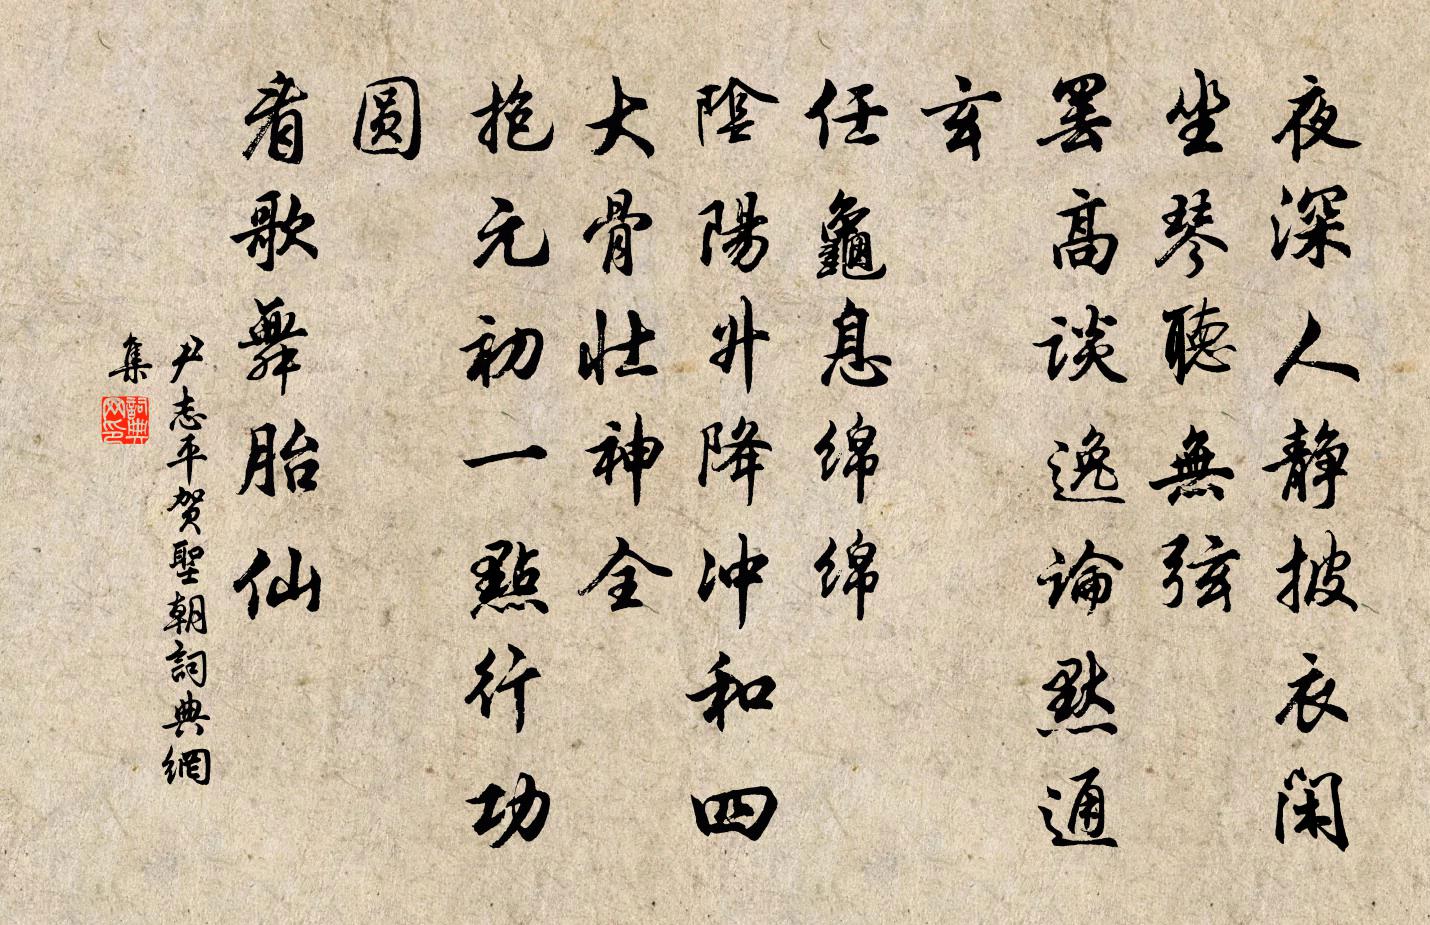 夜深人静披衣闲
坐琴聽無弦
罢高談逸論默通
玄
任龜息绵绵
陰陽升降冲和四
大骨壮神全
抱元初一點行功
圓
看歌舞胎仙
尹志平贺聖朝詞典網
集
詞典
网印